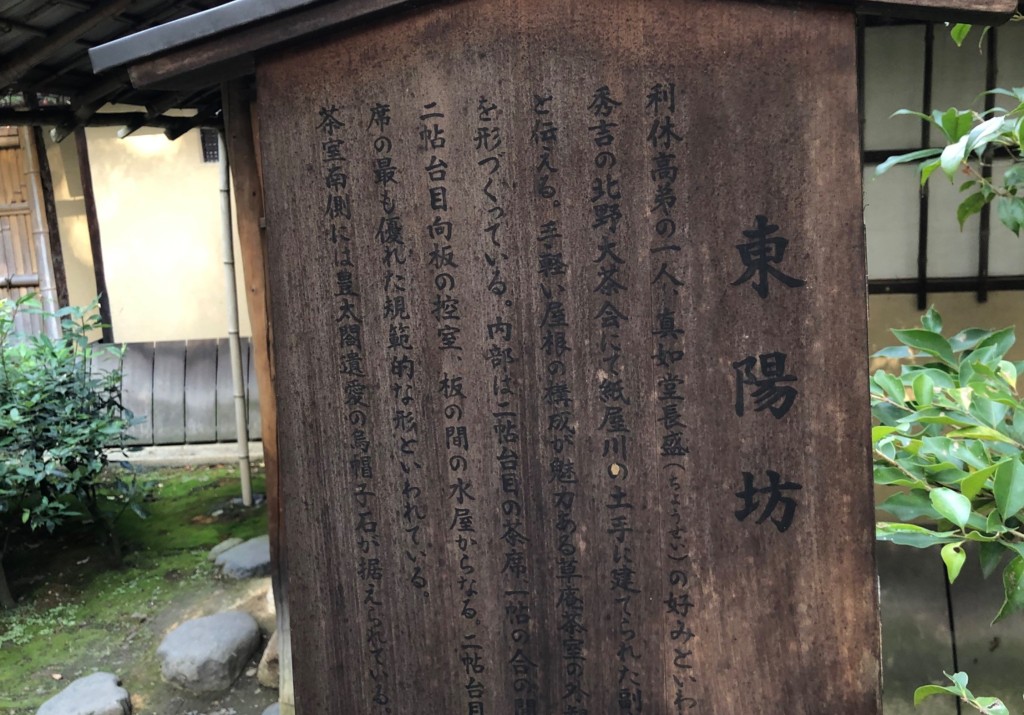 東陽坊
利休高弟の一人、真如堂長盛（ちょうせい）の好みといわ
秀吉の北野大茶会にて紙屋川の土手に建てられた副
と伝える。手軽い屋根の構成が魅力ある草庵茶室の外
を形づくっている。内部は二帖台目の茶席、一帖の合の間
二帖台目向板の控室、板の間の水屋からなる。二帖台目
席の最も優れた規範的な形といわれている。
茶室南側には豊太閤遺愛の烏帽子石が据えられている